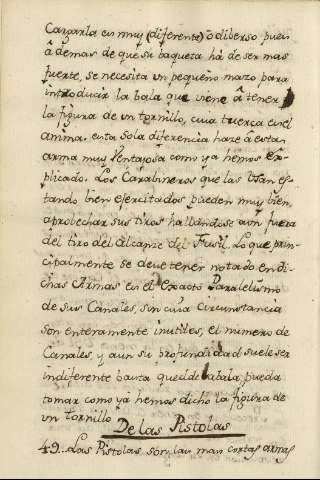 Cargarla es muy (diferente) ò diberso pues
â demas de que su baqueta há de ser mas
fuerte, se necesita un pequeño mazo para
introducir la bala que viene â tener
la figura de un tornillo, cuia tuerca es el
anima. esta sola diferencia hace â esta
arma muy ventayosa como ya hemos ex-
plicado. Los Carabineros que las usan es-
tando bien ejercitados pueden muy bien
aprobechar sus tiros hallandose aun fuera
del tiro del Alcanze del Fusil. Lo que prin-
cipalmente se deve tener notado en di-
chas Armas es el exacto Paralelismo
de sus Canales, sin cuia circunstancia
son enteramente inutiles, el numero de
Canales, y aun su profundidad suele ser
indiferente basta que la bala pueda
tomar como yá hemos dicho la figura de
un tornillo
De las Pistolas
49. Las Pistolas son las mas cortas armas